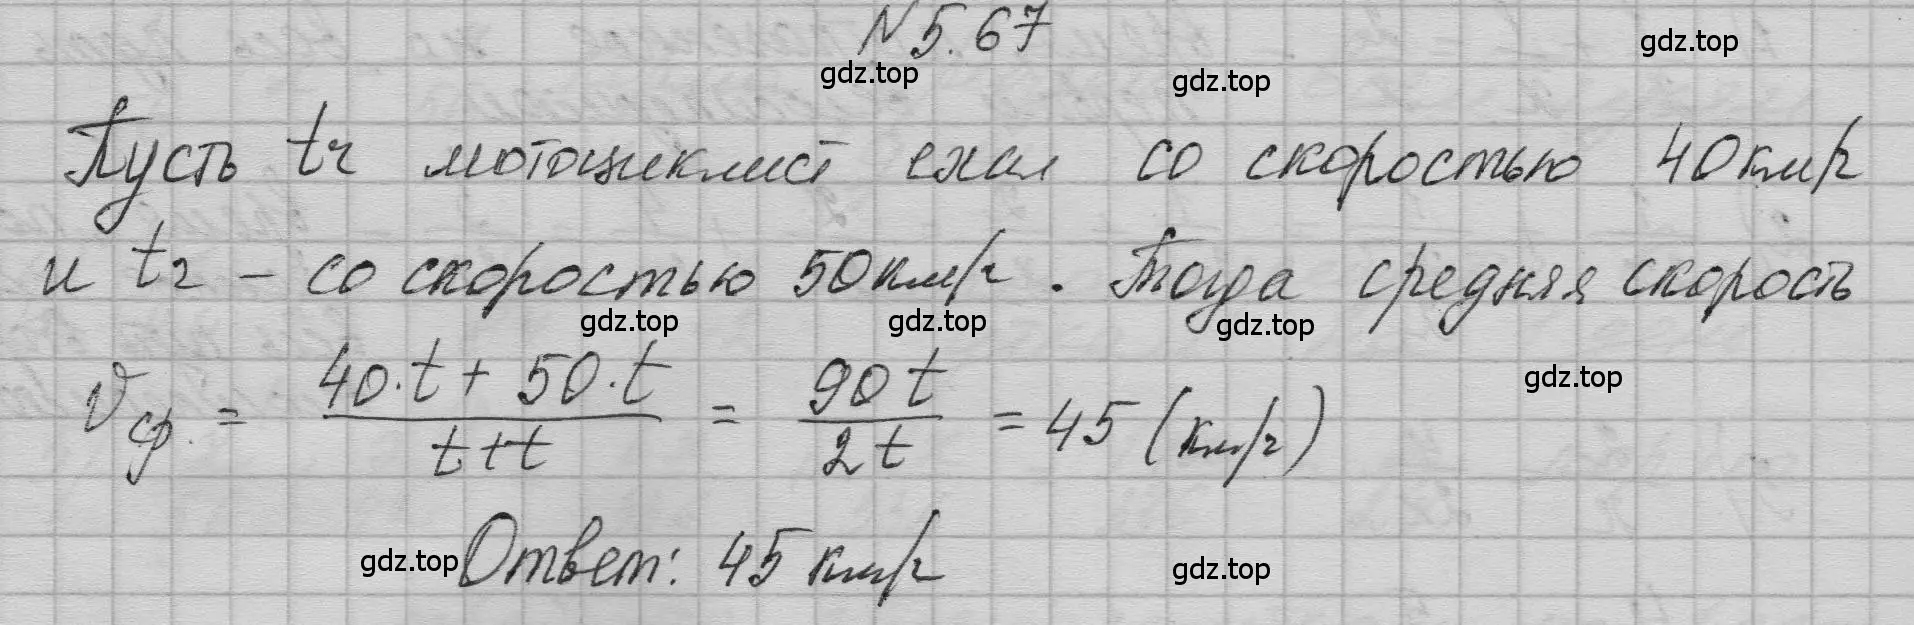 N 5.67
gdz.top
gdz.top
gdz.top
Пусть t ч мотоциклист ехал со скоростью 40 км/ч
и t ч - со скоростью 50 км/ч. Тогда средняя скорость
gdz.top
gdz.top
gdz.top
vср. = (40·t + 50·t)/(t+t) = 90t/2t = 45 (км/ч)
gdz.top
gdz.top
Ответ: 45 км/ч
gdz.top